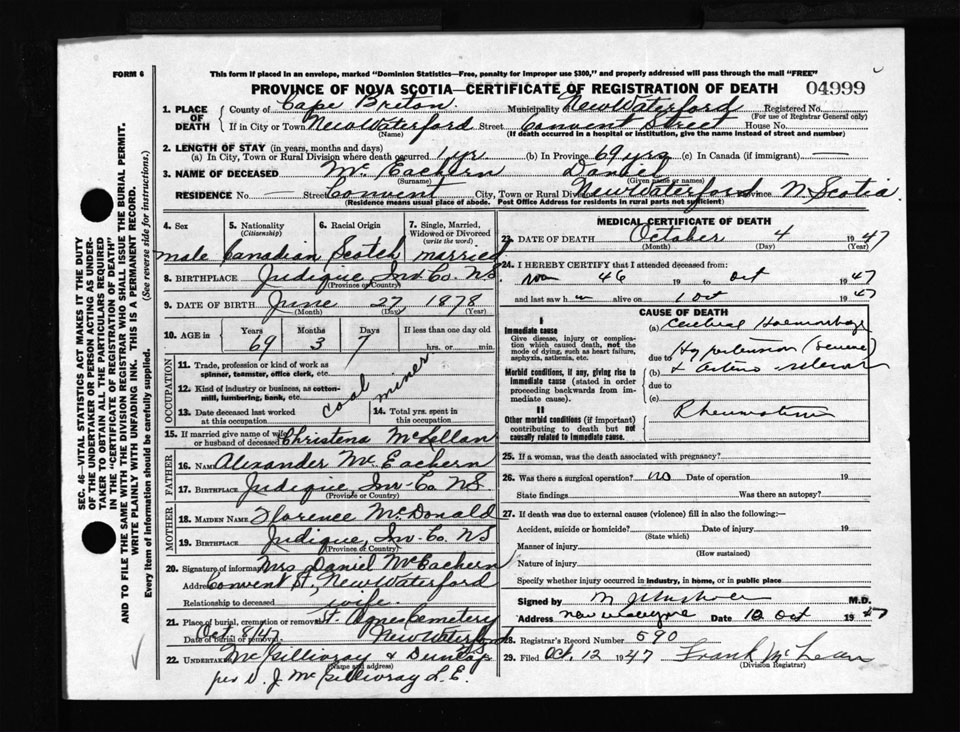 FORM 6
This form if placed in an envelope, marked "Dominion Statistics—Free, penalty for improper use $300," and properly addressed will pass through the mail "FREE"
PROVINCE OF NOVA SCOTIA—CERTIFICATE OF REGISTRATION OF DEATH 04999
1. PLACE OF DEATH
County of Cape Breton Municipality of New Waterford Registered No.
(For use of Registrar General only)
If in City or Town New Waterford Street Convent Street House No.
(Name) (If death occurred in a hospital or institution, give the name instead of street and number)
2. LENGTH OF STAY (in years, months and days)
(a) In City, Town or Rural Division where death occurred 1 yr (b) In Province 69 yrs (c) In Canada (if immigrant) —
3. NAME OF DECEASED Mc Eachern Daniel
(Surname) (Given name or names)
RESIDENCE No. — Street Convent City, Town or Rural Division New Waterford Province N. Scotia.
(Residence means usual place of abode. Post Office Address for residents in rural parts not sufficient)
SEC. 46—VITAL STATISTICS ACT MAKES IT THE DUTY
OF THE UNDERTAKER OR PERSON ACTING AS UNDER-
TAKER TO OBTAIN ALL THE PARTICULARS REQUIRED
IN THE "CERTIFICATE OF REGISTRATION OF DEATH"
AND TO FILE THE SAME WITH THE DIVISION REGISTRAR WHO SHALL ISSUE THE BURIAL PERMIT.
WRITE PLAINLY WITH UNFADING INK. THIS IS A PERMANENT RECORD.
Every item of information should be carefully supplied. (See reverse side for instructions.)
4. Sex
5. Nationality
(Citizenship)
6. Racial Origin
7. Single, Married, Widowed or Divorced
(write the word)
male Canadian Scotch married
8. BIRTHPLACE Judique Inv. Co. N.S.
(Province or Country)
9. DATE OF BIRTH June 27 1878
(Month) (Day) (Year)
10. AGE in
Years Months Days If less than one day old
69 3 7 hrs. or min.
OCCUPATION
11. Trade, profession or kind of work as
spinner, teamster, office clerk, etc.
12. Kind of industry or business, as cotton-
mill, lumbering, bank, etc.
coal miner
13. Date deceased last worked
at this occupation
14. Total yrs. spent in
this occupation
15. If married give name of wife
or husband of deceased Christena McLellan
FATHER
16. NAME Alexander Mc Eachern
17. BIRTHPLACE Judique Inv. Co NS.
(Province or Country)
MOTHER
18. MAIDEN NAME Florence McDonald
19. BIRTHPLACE Judique, Inv. Co. NS
(Province or Country)
20. Signature of informant Mrs Daniel McEachern
Address Convent St. New Waterford
Relationship to deceased wife.
21. Place of burial, cremation or removal St. Agnes Cemetery
Date of burial or removal Oct 8/47 New Waterford
22. Undertaker McGillivray & Dunlap
(Name and address)
per D. J. McGillivray L.E.
MEDICAL CERTIFICATE OF DEATH
23. DATE OF DEATH October 4 1947
(Month) (Day) (Year)
24. I HEREBY CERTIFY that I attended deceased from:
nov 46 19 to Oct 1947
and last saw h m alive on 1 Oct 1947
CAUSE OF DEATH
I
Immediate cause
Give disease, injury or complica-
tion which caused death, not the
mode of dying, such as heart failure,
asphyxia, asthenia, etc.
Morbid conditions, if any, giving rise to
immediate cause (stated in order
proceeding backwards from im-
mediate cause).
II
Other morbid conditions (if important)
contributing to death but not
causally related to immediate cause.
(a) Cerebral Haemorrhage
due to Hypertension (severe)
(b) & arterio-sclerosis
due to
(c)
Rheumatism
25. If a woman, was the death associated with pregnancy?
26. Was there a surgical operation? no Date of operation 19
State findings Was there an autopsy?
27. If death was due to external causes (violence) fill in also the following:—
Accident, suicide or homicide? Date of injury 19
(State which)
Manner of injury
(How sustained)
Nature of injury
Specify whether injury occurred in industry, in home, or in public place
Signed by M.D.
Address Date 10 Oct 1947
28. Registrar's Record Number 590
29. Filed Oct. 12 1947 Frank McLean
(Division Registrar)